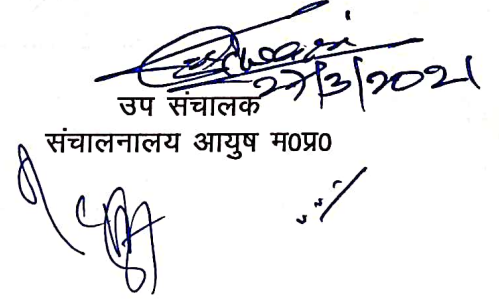 27/3/2021
उप संचालक
संचालनालय आयुष म0प्र0